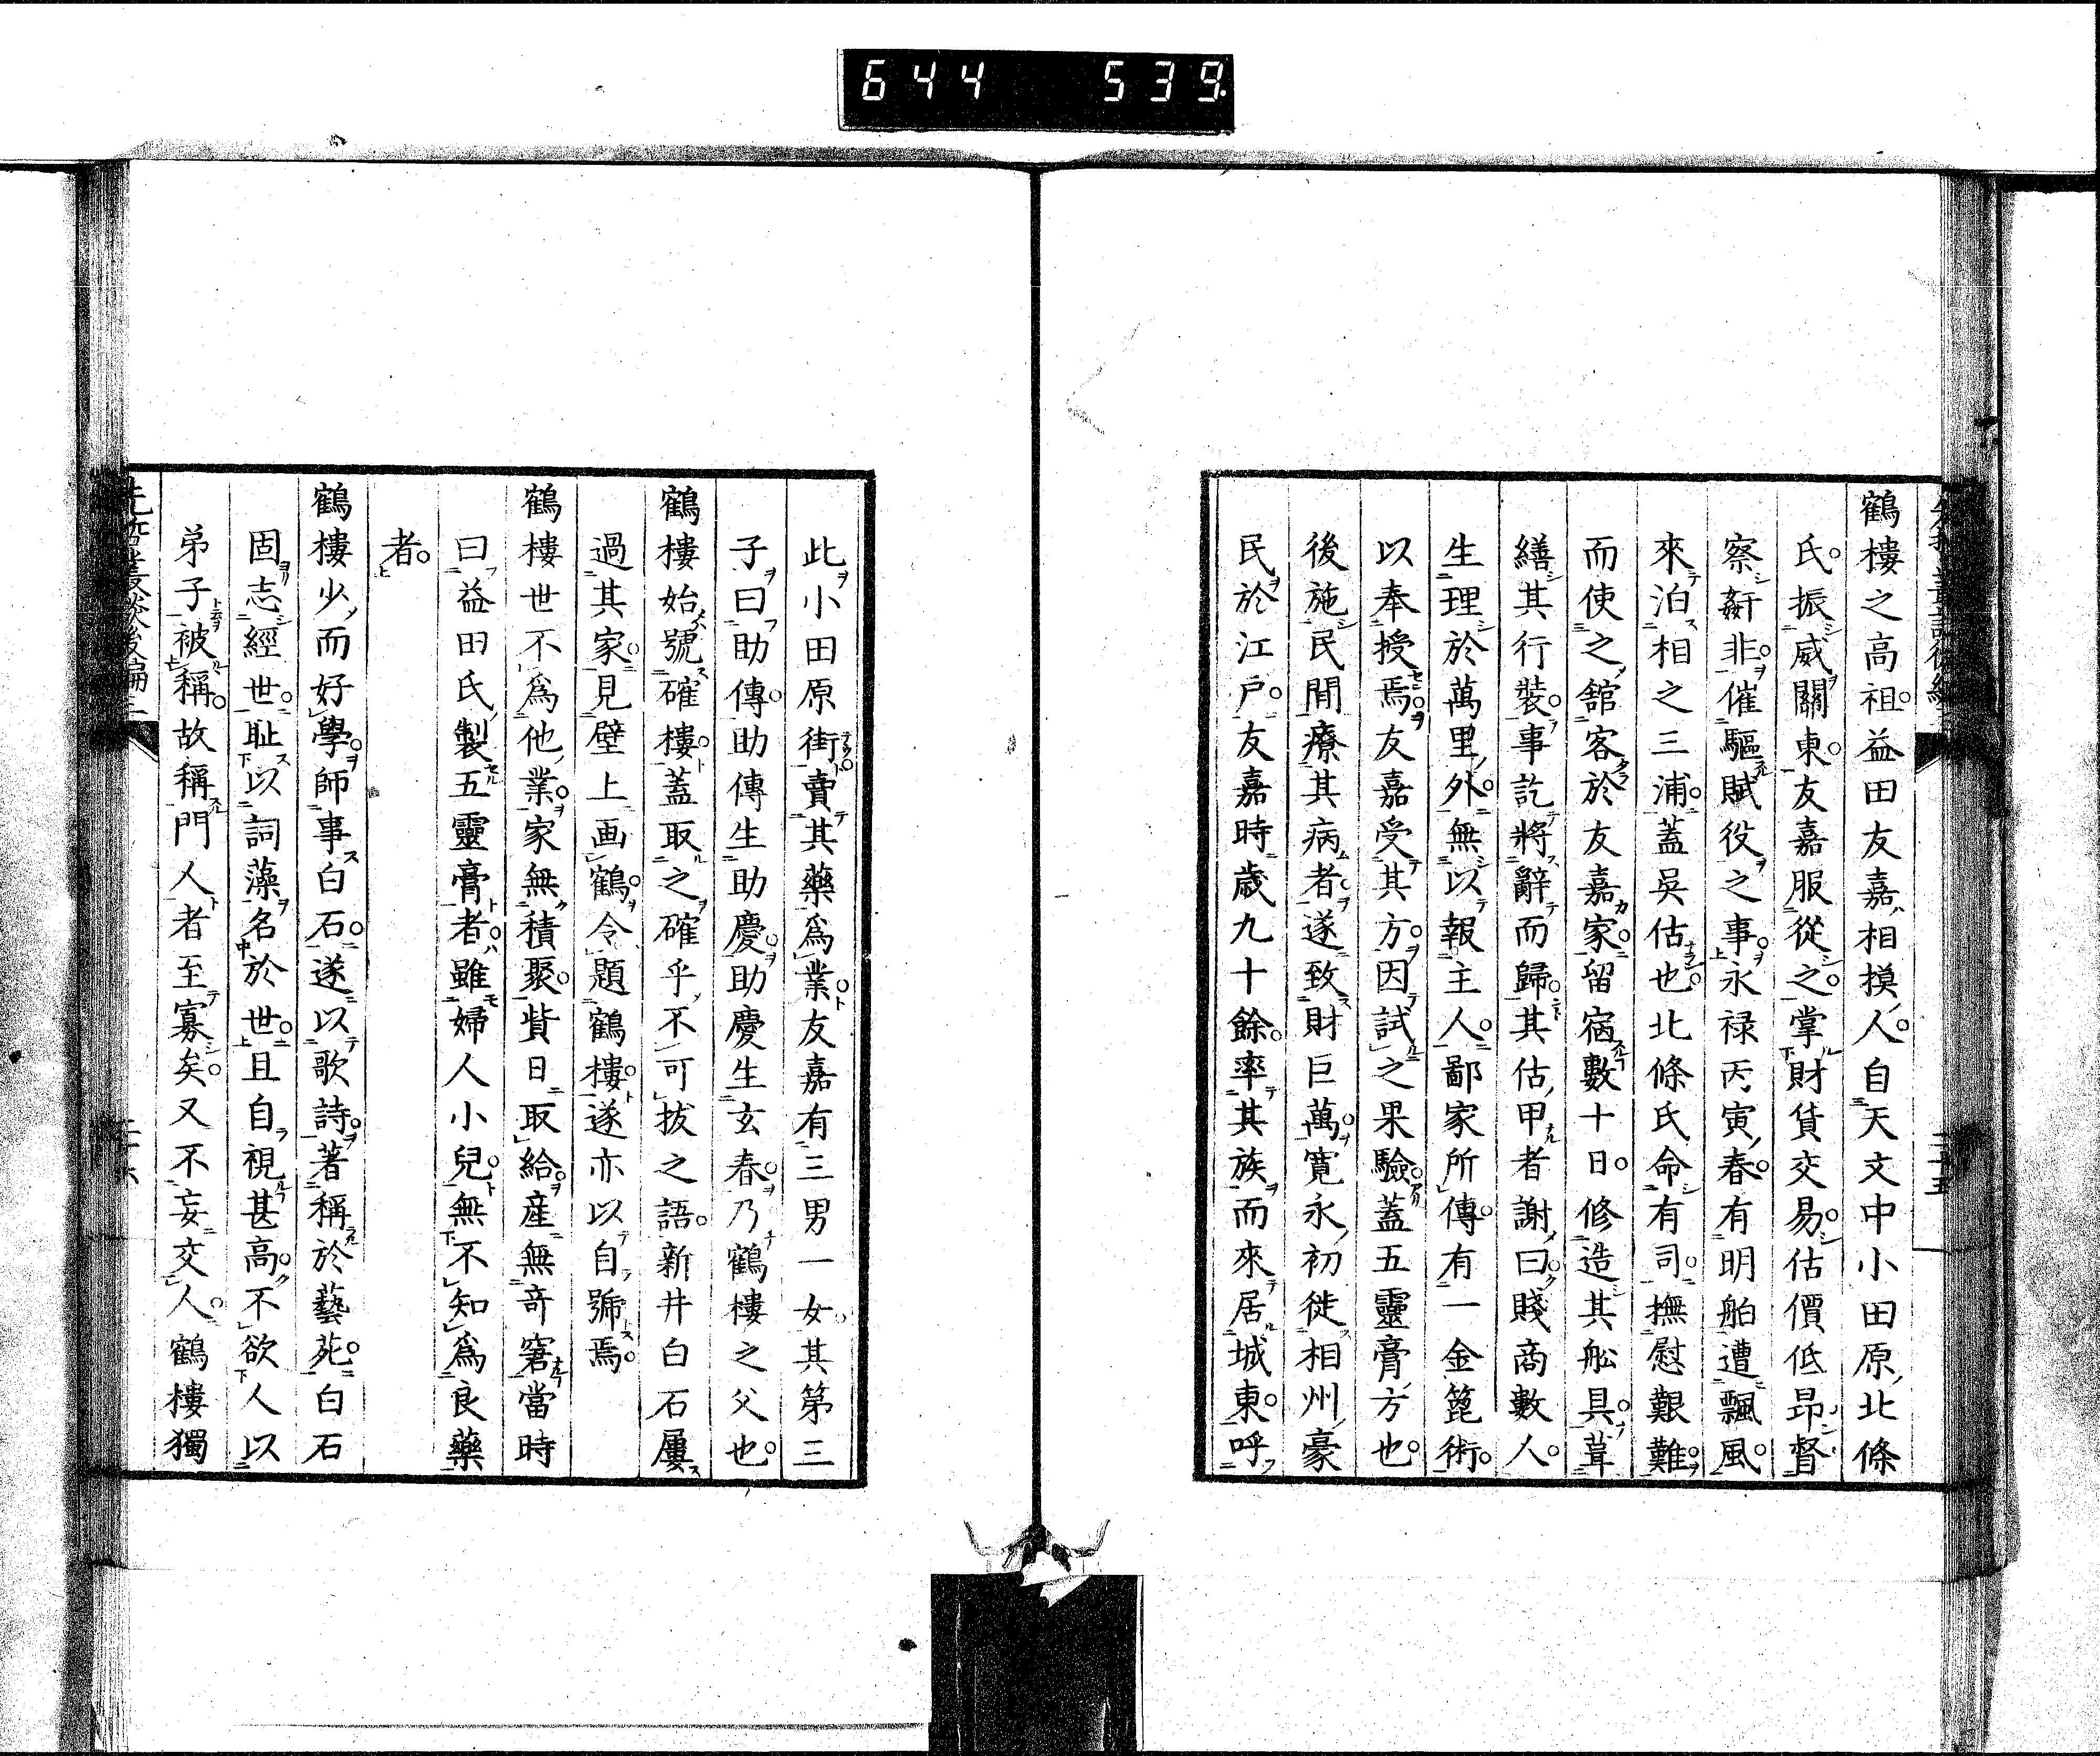 644 539.
鶴樓之高祖益田友嘉相摸人自天文中小田原北條
氏振威關東友嘉服從之掌財貨交易估價低昂督
察姧非催驅賦役之事永禄丙寅春有明舶遭飄風
來泊相之三浦蓋吳估也北條氏命有司撫慰艱難
而使之舘客於友嘉家留宿數十日修造其舩具葺
繕其行裝事訖將辭而歸其估甲者謝曰賤商數人
生理於萬里外無以報主人鄙家所傳有一金篦術
以奉授焉友嘉受其方因試之果驗蓋五靈膏方也
後施民間療其病者遂致財巨萬寛永初徙相州豪
民於江戶友嘉時歳九十餘率其族而來居城東呼
此小田原街賣其藥爲業友嘉有三男一女其第三
子曰助傳助傳生助慶助慶生玄春乃鶴樓之父也
鶴樓始號確樓蓋取之確乎不可拔之語新井白石屢
過其家見壁上画鶴令題鶴樓遂亦以自號焉
鶴樓世不爲他業家無積聚貲日取給産無竒窘當時
曰益田氏製五靈膏者雖婦人小兒無不知爲良藥
者
鶴樓少而好學師事白石遂以歌詩著稱於藝苑白石
固志經世耻以詞藻名於世且自視甚高不欲人以
弟子被稱故稱門人者至寡矣又不妄交人鶴樓獨